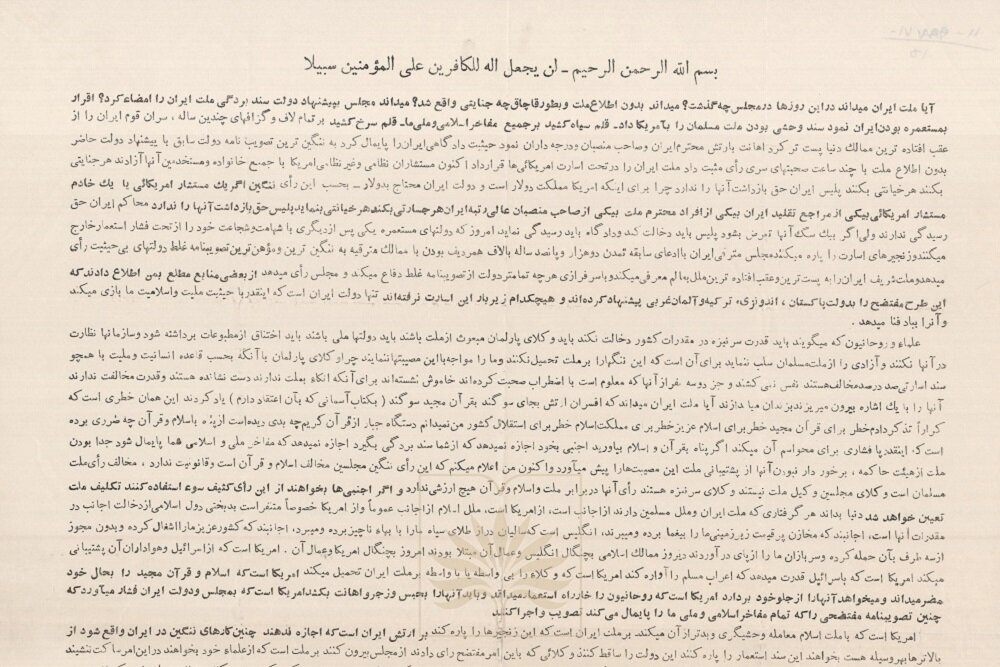 بسم الله الرحمن الرحیم ـ لن یجعل اله للکافرین علی المؤمنین سبیلا
آیا ملت ایران میداند در این روزها در مجلس چه گذشت؟ میداند بدون اطلاع ملت و بطور قاچاق چه جنایتی واقع شد؟ میداند مجلس به پیشنهاد دولت سند بردگی ملت ایران را امضاء کرد؟ اقرار
بمستعمره بودن ایران نمود سند وحشی بودن ملت مسلمان را بآمریکا داد ـ قلم سیاه کشید بر جمیع مفاخر اسلامی و ملی ما ـ قلم سرخ کشید بر تمام لاف و گزافهای چندین ساله، سران قوم ایران را از
عقب افتاده ترین ممالک دنیا پست تر کرد اهانت بارتش محترم ایران و صاحب منصبان و درجه داران نمود حیثیت دادگاهی ایران را پایمال کرد به ننگین ترین تصویب نامه دولت سابق با پیشنهاد دولت حاضر
بدون اطلاع ملت با چند ساعت صحبتهای سری رأی مثبت داد ملت ایران را در تحت اسارت امریکائی‌ها قرار داد اکنون مستشاران نظامی و غیر نظامی امریکا با جمیع خانواده و مستخدمین آنها آزادند هر جنایتی
بکنند هر خیانتی بکنند پلیس ایران حق بازداشت آنها را ندارد چرا برای اینکه امریکا مملکت دولار است و دولت ایران محتاج بدولار ـ بحسب این رأی ننگین اگر یک مستشار امریکائی یا یک خادم
مستشار امریکائی بیکی از مراجع تقلید ایران بیکی از افراد محترم ملت بیکی از صاحب منصبان عالی رتبه ایران هر جسارتی بکند هر خیانتی بنماید پلیس حق بازداشت آنها را ندارد محاکم ایران حق
رسیدگی ندارند ولی اگر بیک سگ آنها تعرض بشود پلیس باید دخالت کند دادگاه باید رسیدگی نماید امروز که دولتهای مستعمره یکی پس از دیگری با شهامت و شجاعت خود را از تحت فشار استعمار خارج
میکنند و زنجیرهای اسارت را پاره میکنند مجلس مترقی ایران با ادعای سابقه تمدن دو هزار و پانصد ساله بالاف همردیف بودن با ممالک مترقیه به ننگین ترین و موهن ترین تصویبنامه غلط دولتهای بی حیثیت رأی
میدهد و ملت شریف ایران را به پست ترین و عقب افتاده ترین ملل بعالم معرفی میکند و با سرفرازی هر چه تمامتر دولت از تصویبنامه غلط دفاع میکند و مجلس رأی میدهد از بعضی منابع مطلع بمن اطلاع دادند که
این طرح مفتضح را بدولت پاکستان، اندونزی، ترکیه و آلمان غربی پیشنهاد کرده‌اند و هیچکدام زیر بار این اسارت نرفته‌اند تنها دولت ایران است که اینقدر با حیثیت ملیت و اسلامیت ما بازی میکند
و آنرا بباد فنا میدهد.
علماء و روحانیون که میگویند باید قدرت سرنیزه در مقدرات کشور دخالت نکند باید وکلای پارلمان مبعوث از ملت باشند باید دولتها ملی باشند باید اختناق از مطبوعات برداشته شود و سازمانها نظارت
در آنها نکنند و آزادی را از ملت مسلمان سلب ننماید برای آن است که این ننگها را بر ملت تحمیل نکنند و ما را مواجه با این مصیبتها ننمایند چرا وکلای پارلمان با آنکه بحسب قاعده انسانیت و ملیت با همچو
سند اسارتی صد در صد مخالف هستند نفس نمی کشند و جز دو سه نفر از آنها که معلوم است با اضطراب صحبت کرده‌اند خاموش نشسته‌اند برای آنکه اتکاء بملت ندارند دست نشانده هستند و قدرت مخالفت ندارند
آنها را با یک اشاره بیرون میریزند بزندان میاندازند آیا ملت ایران میداند که افسران ارتش بجای سوگند بقرآن مجید سوگند (بکتاب آسمانی که بآن اعتقاد دارم) یاد کردند این همان خطری است که
کراراً تذکر دادم خطر برای قرآن مجید خطر برای اسلام عزیز خطر برای مملکت اسلام خطر برای استقلال کشور من نمیدانم دستگاه جبار از قرآن کریم چه بدی دیده است از پناه باسلام و قرآن چه ضرری برده
است که اینقدر پا فشاری برای محو اسم آن میکند اگر پناه بقرآن و اسلام بیاورید اجنبی بخود اجازه نمیدهد که از شما سند بردگی بگیرد اجازه نمیدهد که مفاخر ملی و اسلامی شما پایمال شود جدا بودن
ملت از هیئت حاکمه، برخوردار نبودن آنها از پشتیبانی ملت این مصیبت‌ها را پیش میآورد و اکنون من اعلام میکنم که این رأی ننگین مجلسین مخالف اسلام و قرآن است و قانونیت ندارد، مخالف رأی ملت
مسلمان است وکلای مجلسین وکیل ملت نیستند وکلای سرنیزه هستند رأی آنها در برابر ملت و اسلام و قرآن هیچ ارزشی ندارد و اگر اجنبی‌ها بخواهند از این رأی کثیف سوء استفاده کنند تکلیف ملت
تعیین خواهد شد دنیا بداند هر گرفتاری که ملت ایران و ملل مسلمین دارند از اجانب است، از امریکا است، ملل اسلام از اجانب عموماً و از امریکا خصوصاً متنفر است بدبختی دول اسلامی از دخالت اجانب در
مقدرات آنها است، اجانبند که مخازن پر قیمت زیر زمینی ما را بیغما برده و میبرند، انگلیس است که سالیان دراز طلای سیاه ما را با بهاء ناچیز برده و میبرد، اجانبند که کشور عزیز ما را اشغال کرده و بدون مجوز
از سه طرف بآن حمله کرده و سربازان ما را از پای در آوردند دیروز ممالک اسلامی بچنگال انگلیس و عمال آن مبتلا بودند امروز بچنگال امریکا و عمال آن. امریکا است که از اسرائیل و هواداران آن پشتیبانی
میکند امریکا است که باسرائیل قدرت میدهد که اعراب مسلم را آواره کند امریکا است که وکلاء را بی واسطه یا با واسطه بر ملت ایران تحمیل میکند امریکا است که اسلام و قرآن مجید را بحال خود
مضر میداند و میخواهد آنها را از جلو خود بردارد امریکا است که روحانیون را خار راه استعمار میداند و باید آنها را بحبس و زجر و اهانت بکشد امریکا است که بمجلس و دولت ایران فشار میآورد که
چنین تصویبنامه مفتضحی را که تمام مفاخر اسلامی و ملی ما را پایمال می کند تصویب و اجرا کنند
امریکا است که با ملت اسلام معامله وحشیگری و بدتر از آن میکند. بر ملت ایران است که این زنجیرها را پاره کند بر ارتش ایران است که اجازه ندهند چنین کارهای ننگین در ایران واقع شود از
بالاترها بهر وسیله هست بخواهند این سند استعمار را پاره کنند این دولت را ساقط کنند وکلائی که باین امر مفتضح رای دادند از مجلس بیرون کنند بر ملت است که از علماء خود بخواهند در این امر ساکت ننشینند